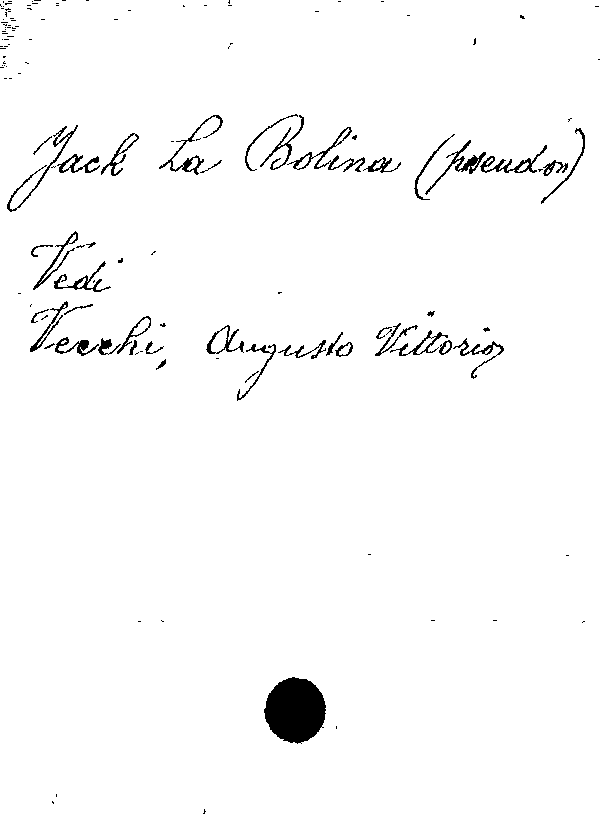 Jack La Bolina (pseudon)
Vedi
Vecchi, Augusto Vittorio